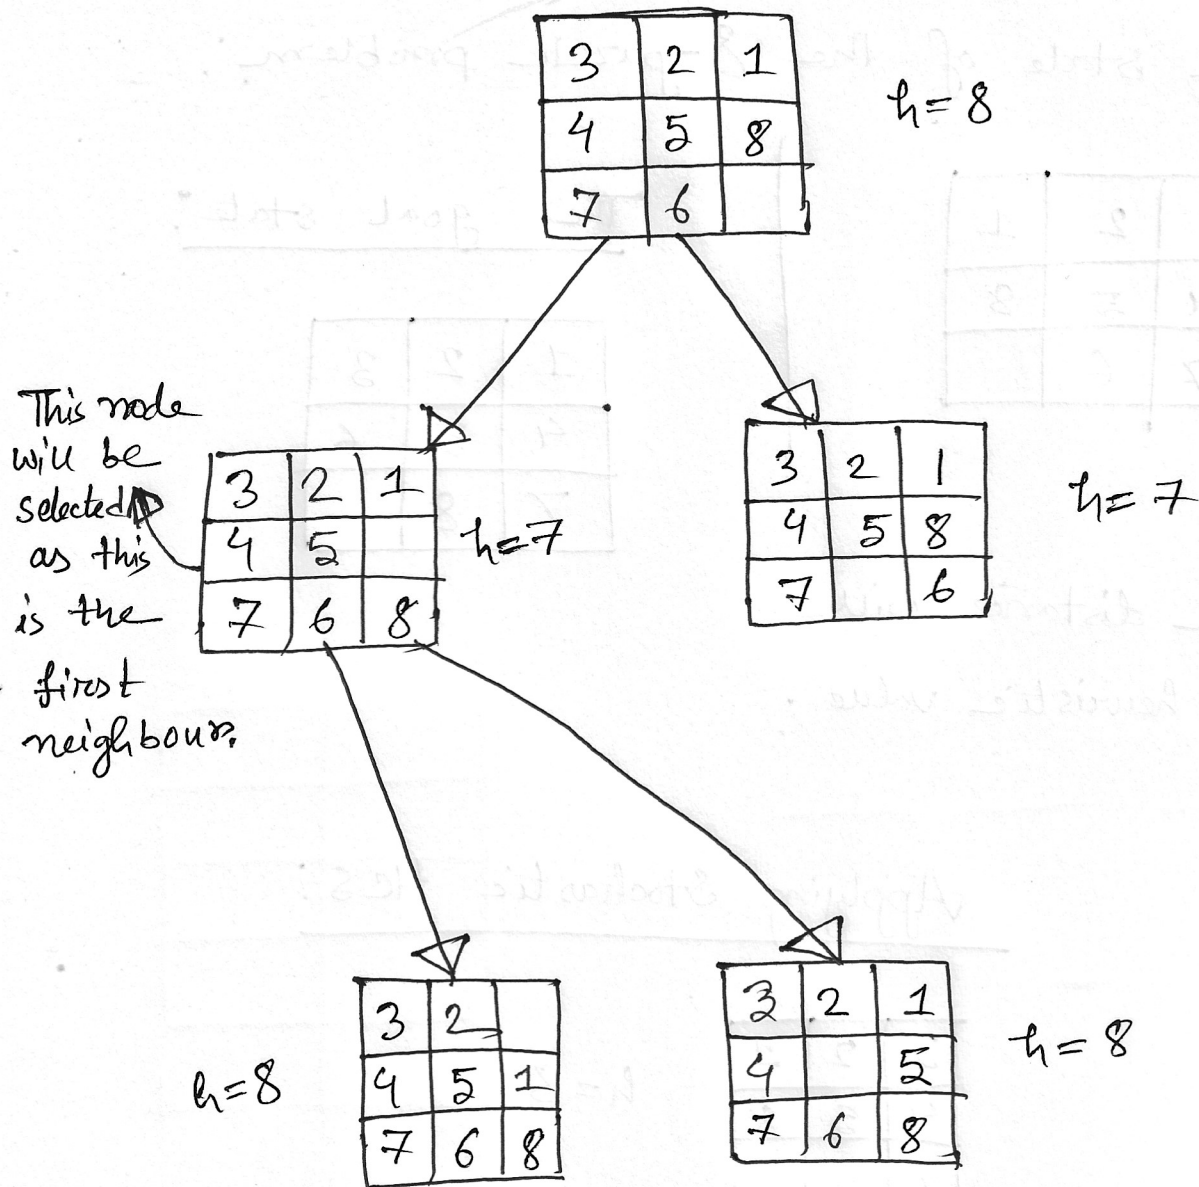 3 2 1
4 5 8
7 6
h = 8
This node
will be
selected
as this
is the
first
neighbour.
3 2 1
4 5
7 6 8
h = 7
3 2 1
4 5 8
7 6
h = 7
h = 8
3 2
4 5 1
7 6 8
3 2 1
4 5
7 6 8
h = 8